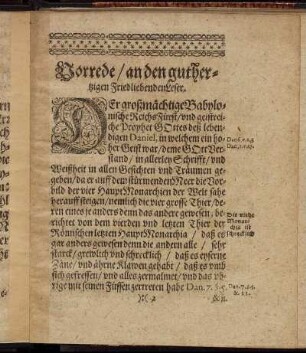 Vorrede / an den guther-
tzigen Friedliebenden Leser.
DEr großmächtige Babylo-
nische Reichs Fürst / vnd geistrei-
che Prophet GOttes deß leben-
digen Daniel, in welchem ein ho-
her Geist war / deme GOtt Ver-
stand / in allerley Schrifft / vnd
Weißheit in allen Gesichten vnd Träumen ge-
geben / da er auff dem stürmenden Meer die Vor-
bild der vier Haupt Monarchien der Welt sahe
herauff steigen / nemlich die vier grosse Thier / de-
ren eines je anders denn das andere gewesen / be-
richtet von dem vierden vnd letzten Thier der
Römischen letzten Haupt Monarchia / daß es
gar anders gewesen denn die andern alle / sehr
starck / grewlich und schrecklich / daß es eyserne
Zäne / vnd ährne Klawen gehabt / daß es vmb
sich gefressen / vnd alles zermalmet / vnd das vbri-
ge mit seinen Füssen zertreten habe Dan. 7.
Die vierdte
Monar-
chia ist
schrecklich